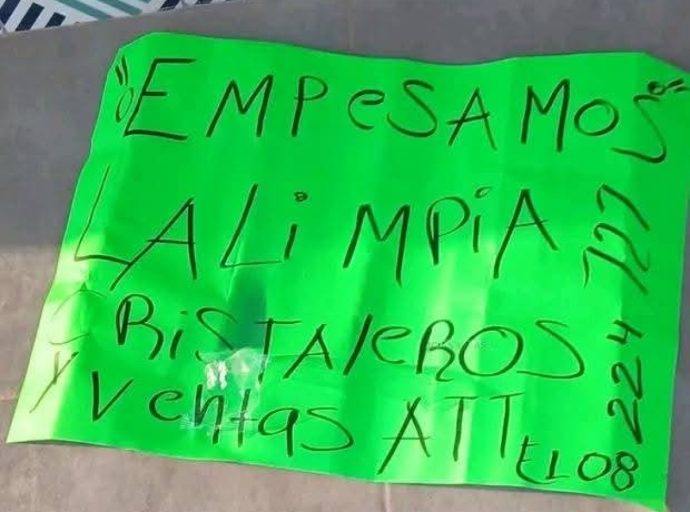 "EMPeSAMOS"
LALiMPiA
CRiSTAleROS
y VeNtas ATT
EL08
224
727